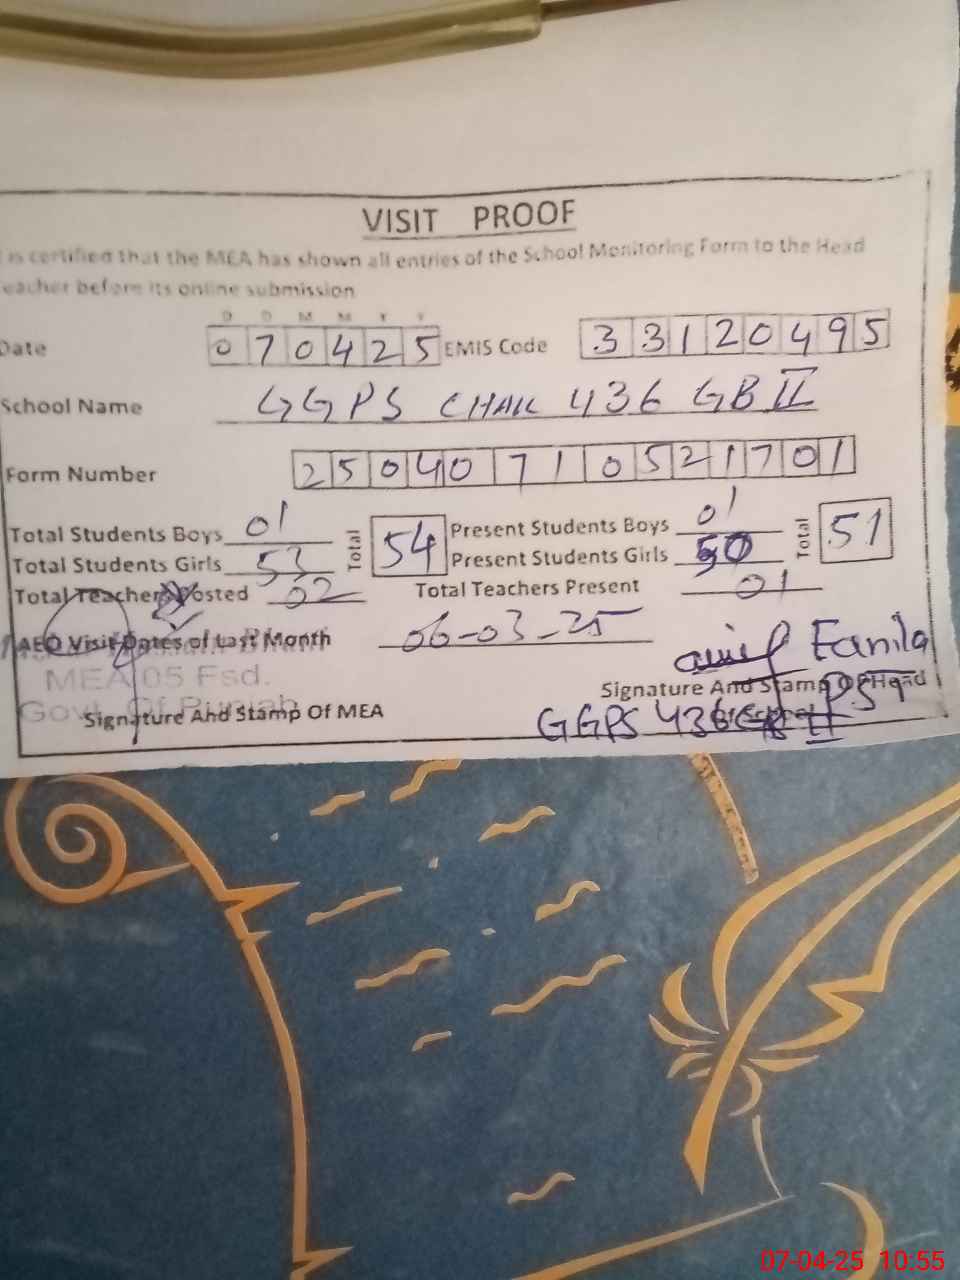 VISIT PROOF
is certified that the MEA has shown all entries of the School Monitoring Form to the Head
eacher before its online submission
D D M M Y Y
Date 070425 EMIS Code 33120495
School Name GGPS CHAK 436 GB II
Form Number 25040710521701
Total Students Boys 01 Total 54 Present Students Boys 01 Total 51
Total Students Girls 53 Present Students Girls 50
Total Teachers Posted 02 Total Teachers Present 01
AEO Visit Dates of Last Month 06-03-25
Fanila
MEA 05 Fsd.
Signature And Stamp Of Head PST
Govt. Of Punjab
Signature And Stamp Of MEA
GGPS 436 GB II
07-04-25 10:55